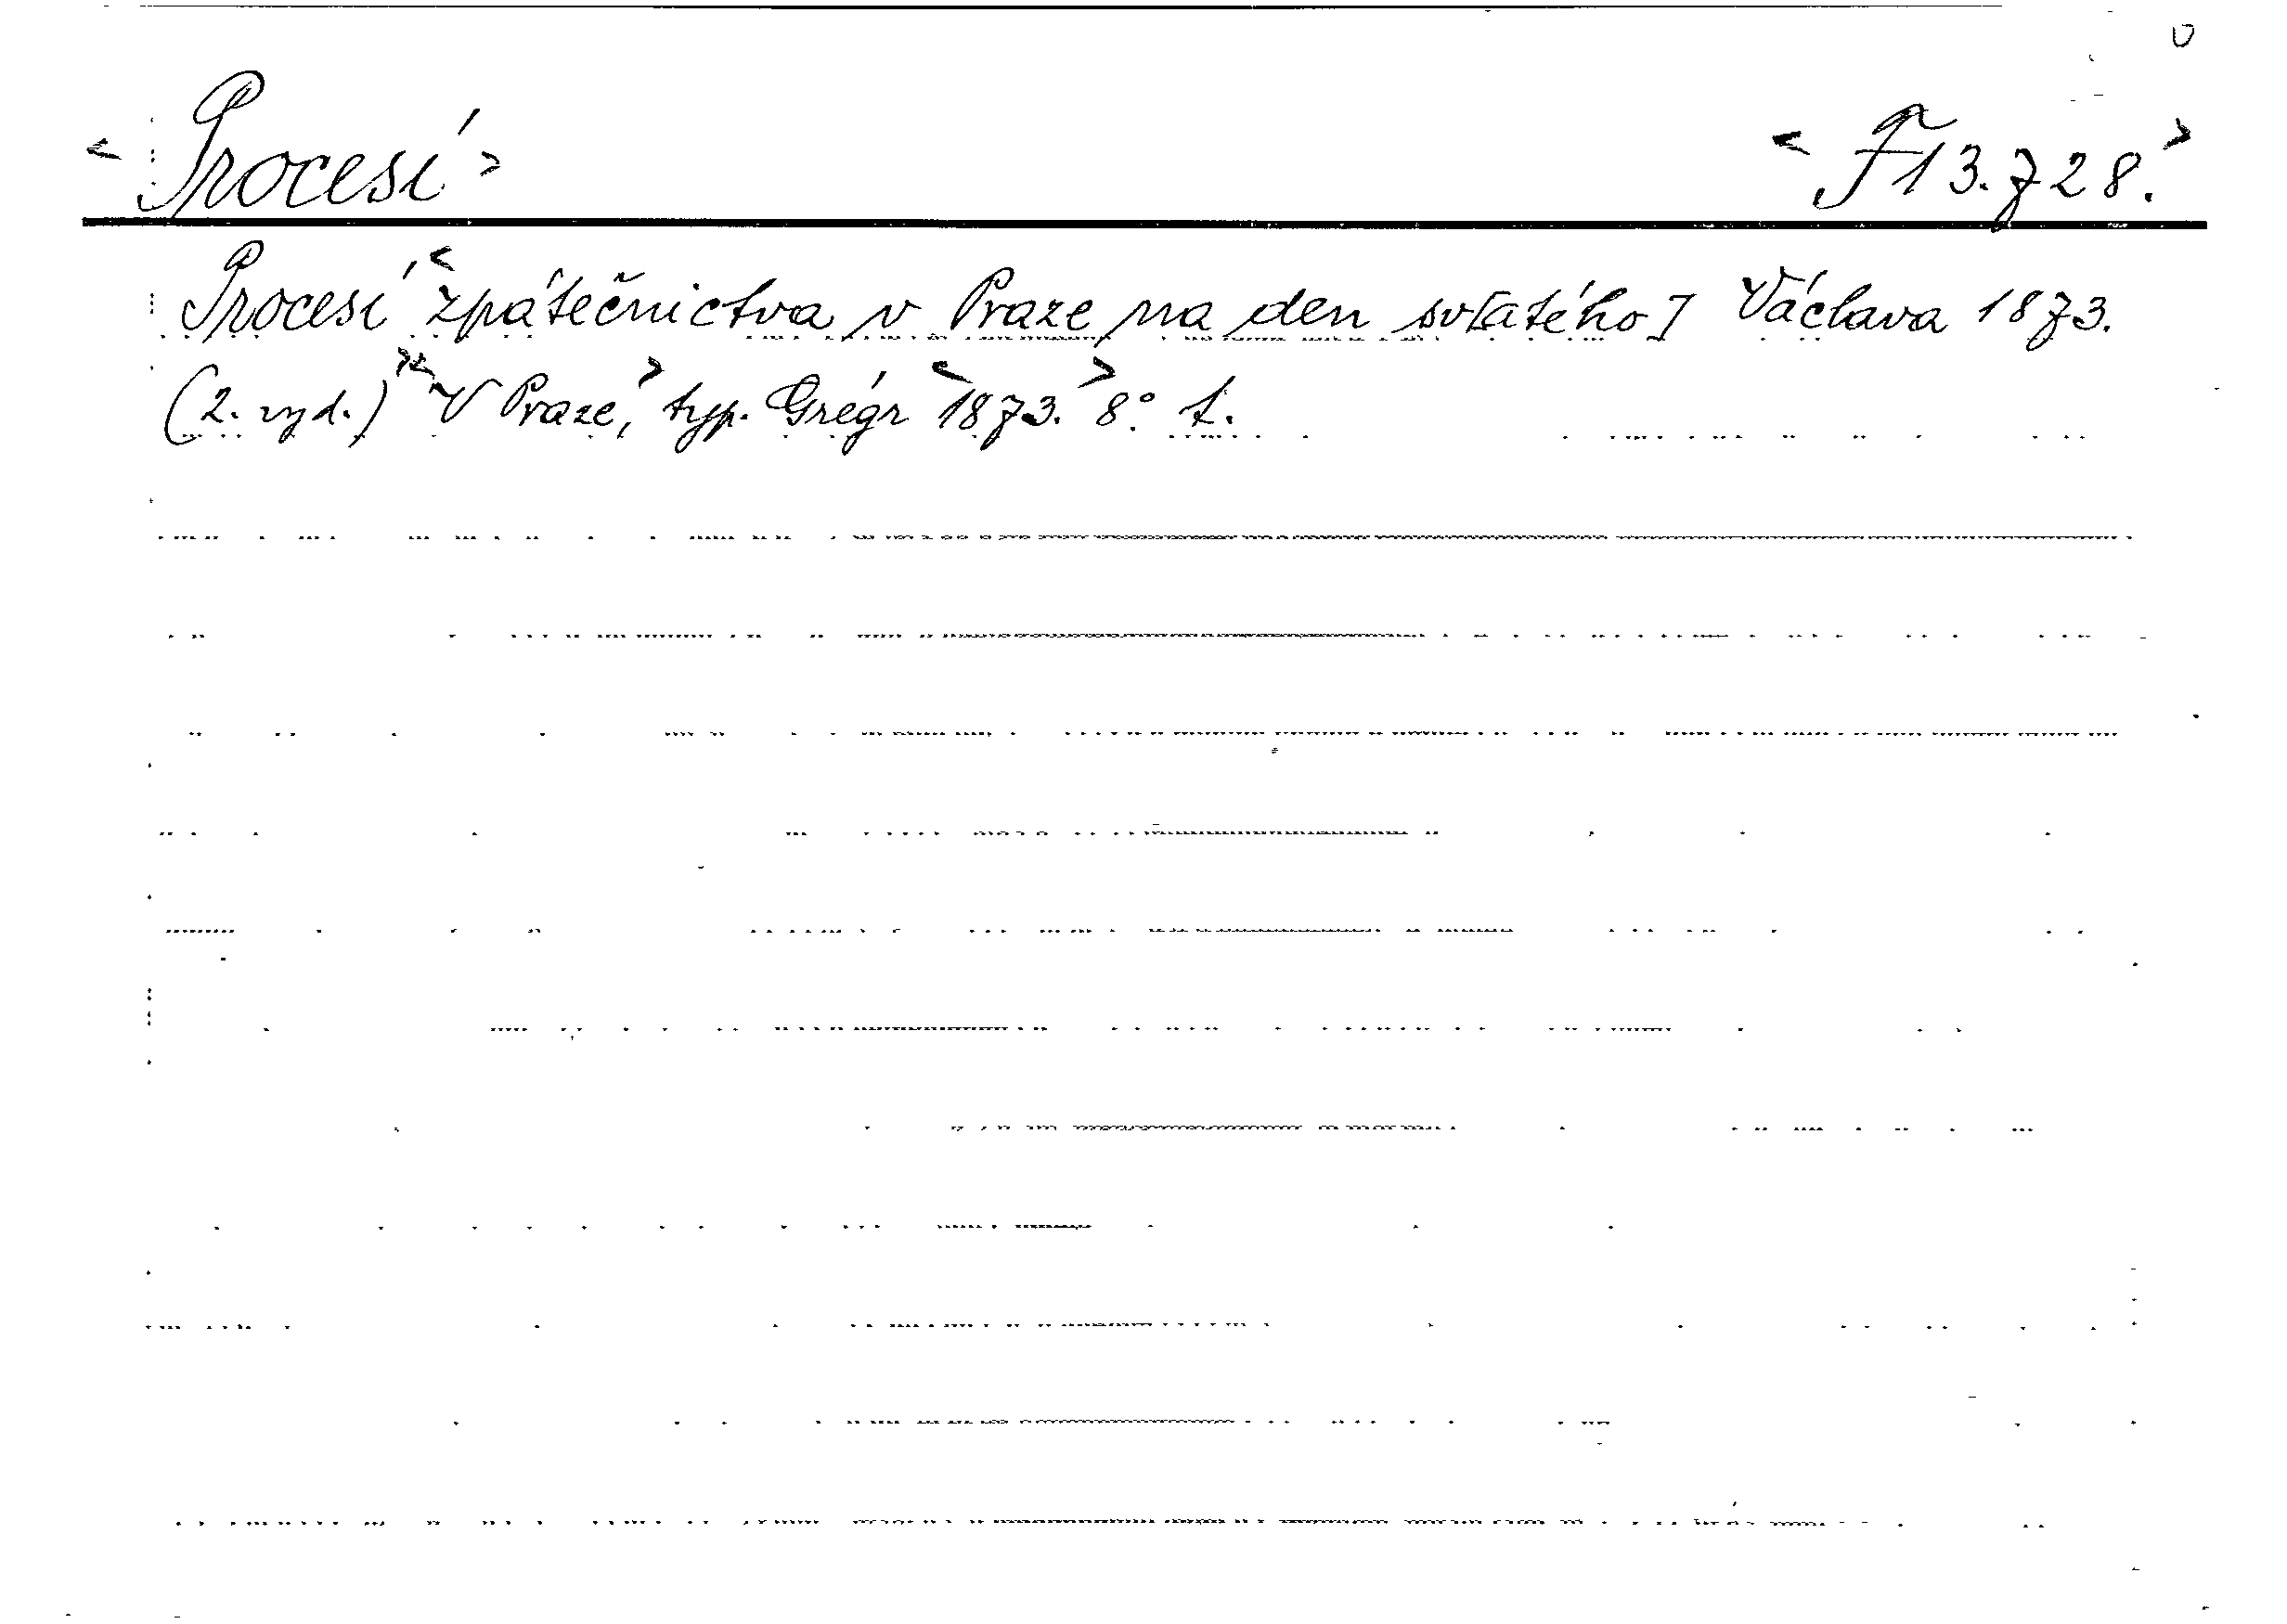 <Procesí> <F13.728.>
Procesí <zpátečnictva v Praze na den sv[atého] Václava 1873.
(2. vyd.)> <V Praze,> typ. Grégr <1873.> 8°. t.